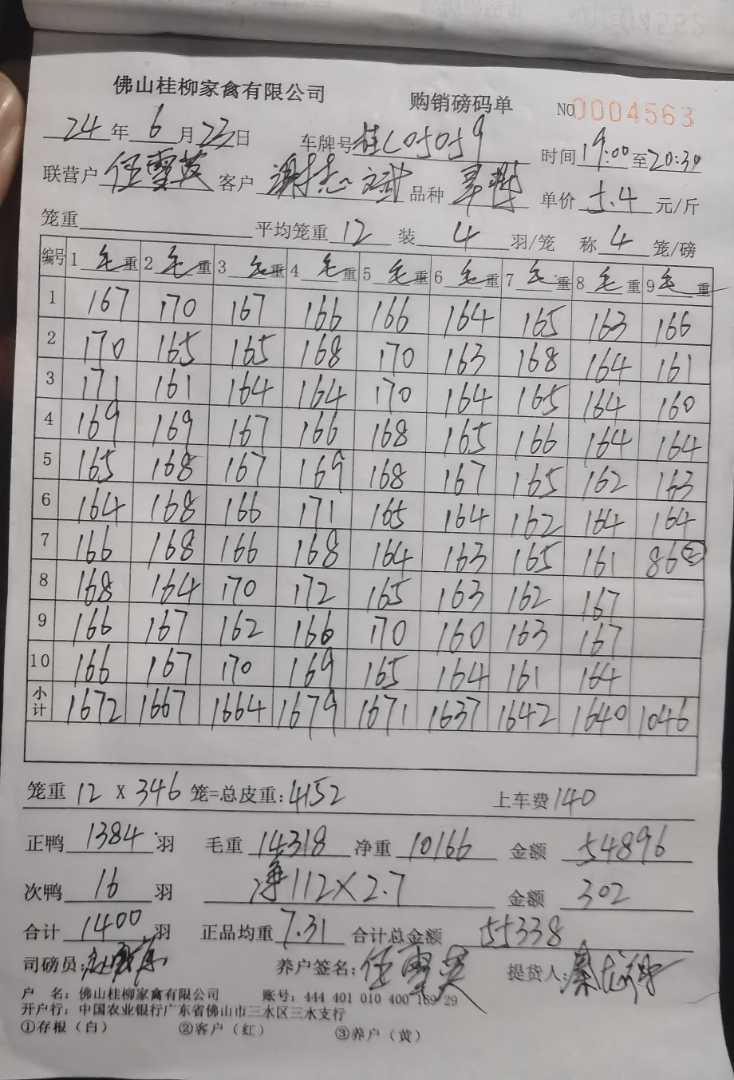 佛山桂柳家禽有限公司 购销磅码单 NO 0004563
24年6月23日 车牌号桂L05059 时间19:00至20:30
联营户 任雪英 客户 谢志斌 品种 单价 5.4 元/斤
笼重 平均笼重 12 装 4 羽/笼 称 4 笼/磅
编号 1 毛重 2 毛重 3 毛重 4 毛重 5 毛重 6 毛重 7 毛重 8 毛重 9 毛重
1 167 170 167 166 166 164 165 163 166
2 170 165 165 168 170 163 168 164 161
3 171 161 164 164 170 164 165 164 160
4 169 169 167 166 168 165 166 164 164
5 165 168 167 169 168 167 165 162 163
6 164 168 166 171 165 164 162 164 164
7 166 168 166 168 164 163 165 161 86②
8 168 164 170 172 165 163 162 167
9 166 167 162 166 170 160 163 167
10 166 167 170 169 165 164 161 164
小计 1672 1667 1664 1679 1671 1637 1642 1640 1046
笼重 12 X 346 笼=总皮重:4152 上车费 140
正鸭 1384 羽 毛重 14318 净重 10166 金额 54896
次鸭 16 羽 净112×2.7 金额 302
合计 1400 羽 正品均重 7.31 合计总金额 55338
司磅员: 养户签名: 任雪英 提货人:
户 名: 佛山桂柳家禽有限公司 账号: 444 401 010 400 169 29
开户行: 中国农业银行广东省佛山市三水区三水支行
①存根(白) ②客户(红) ③养户(黄)